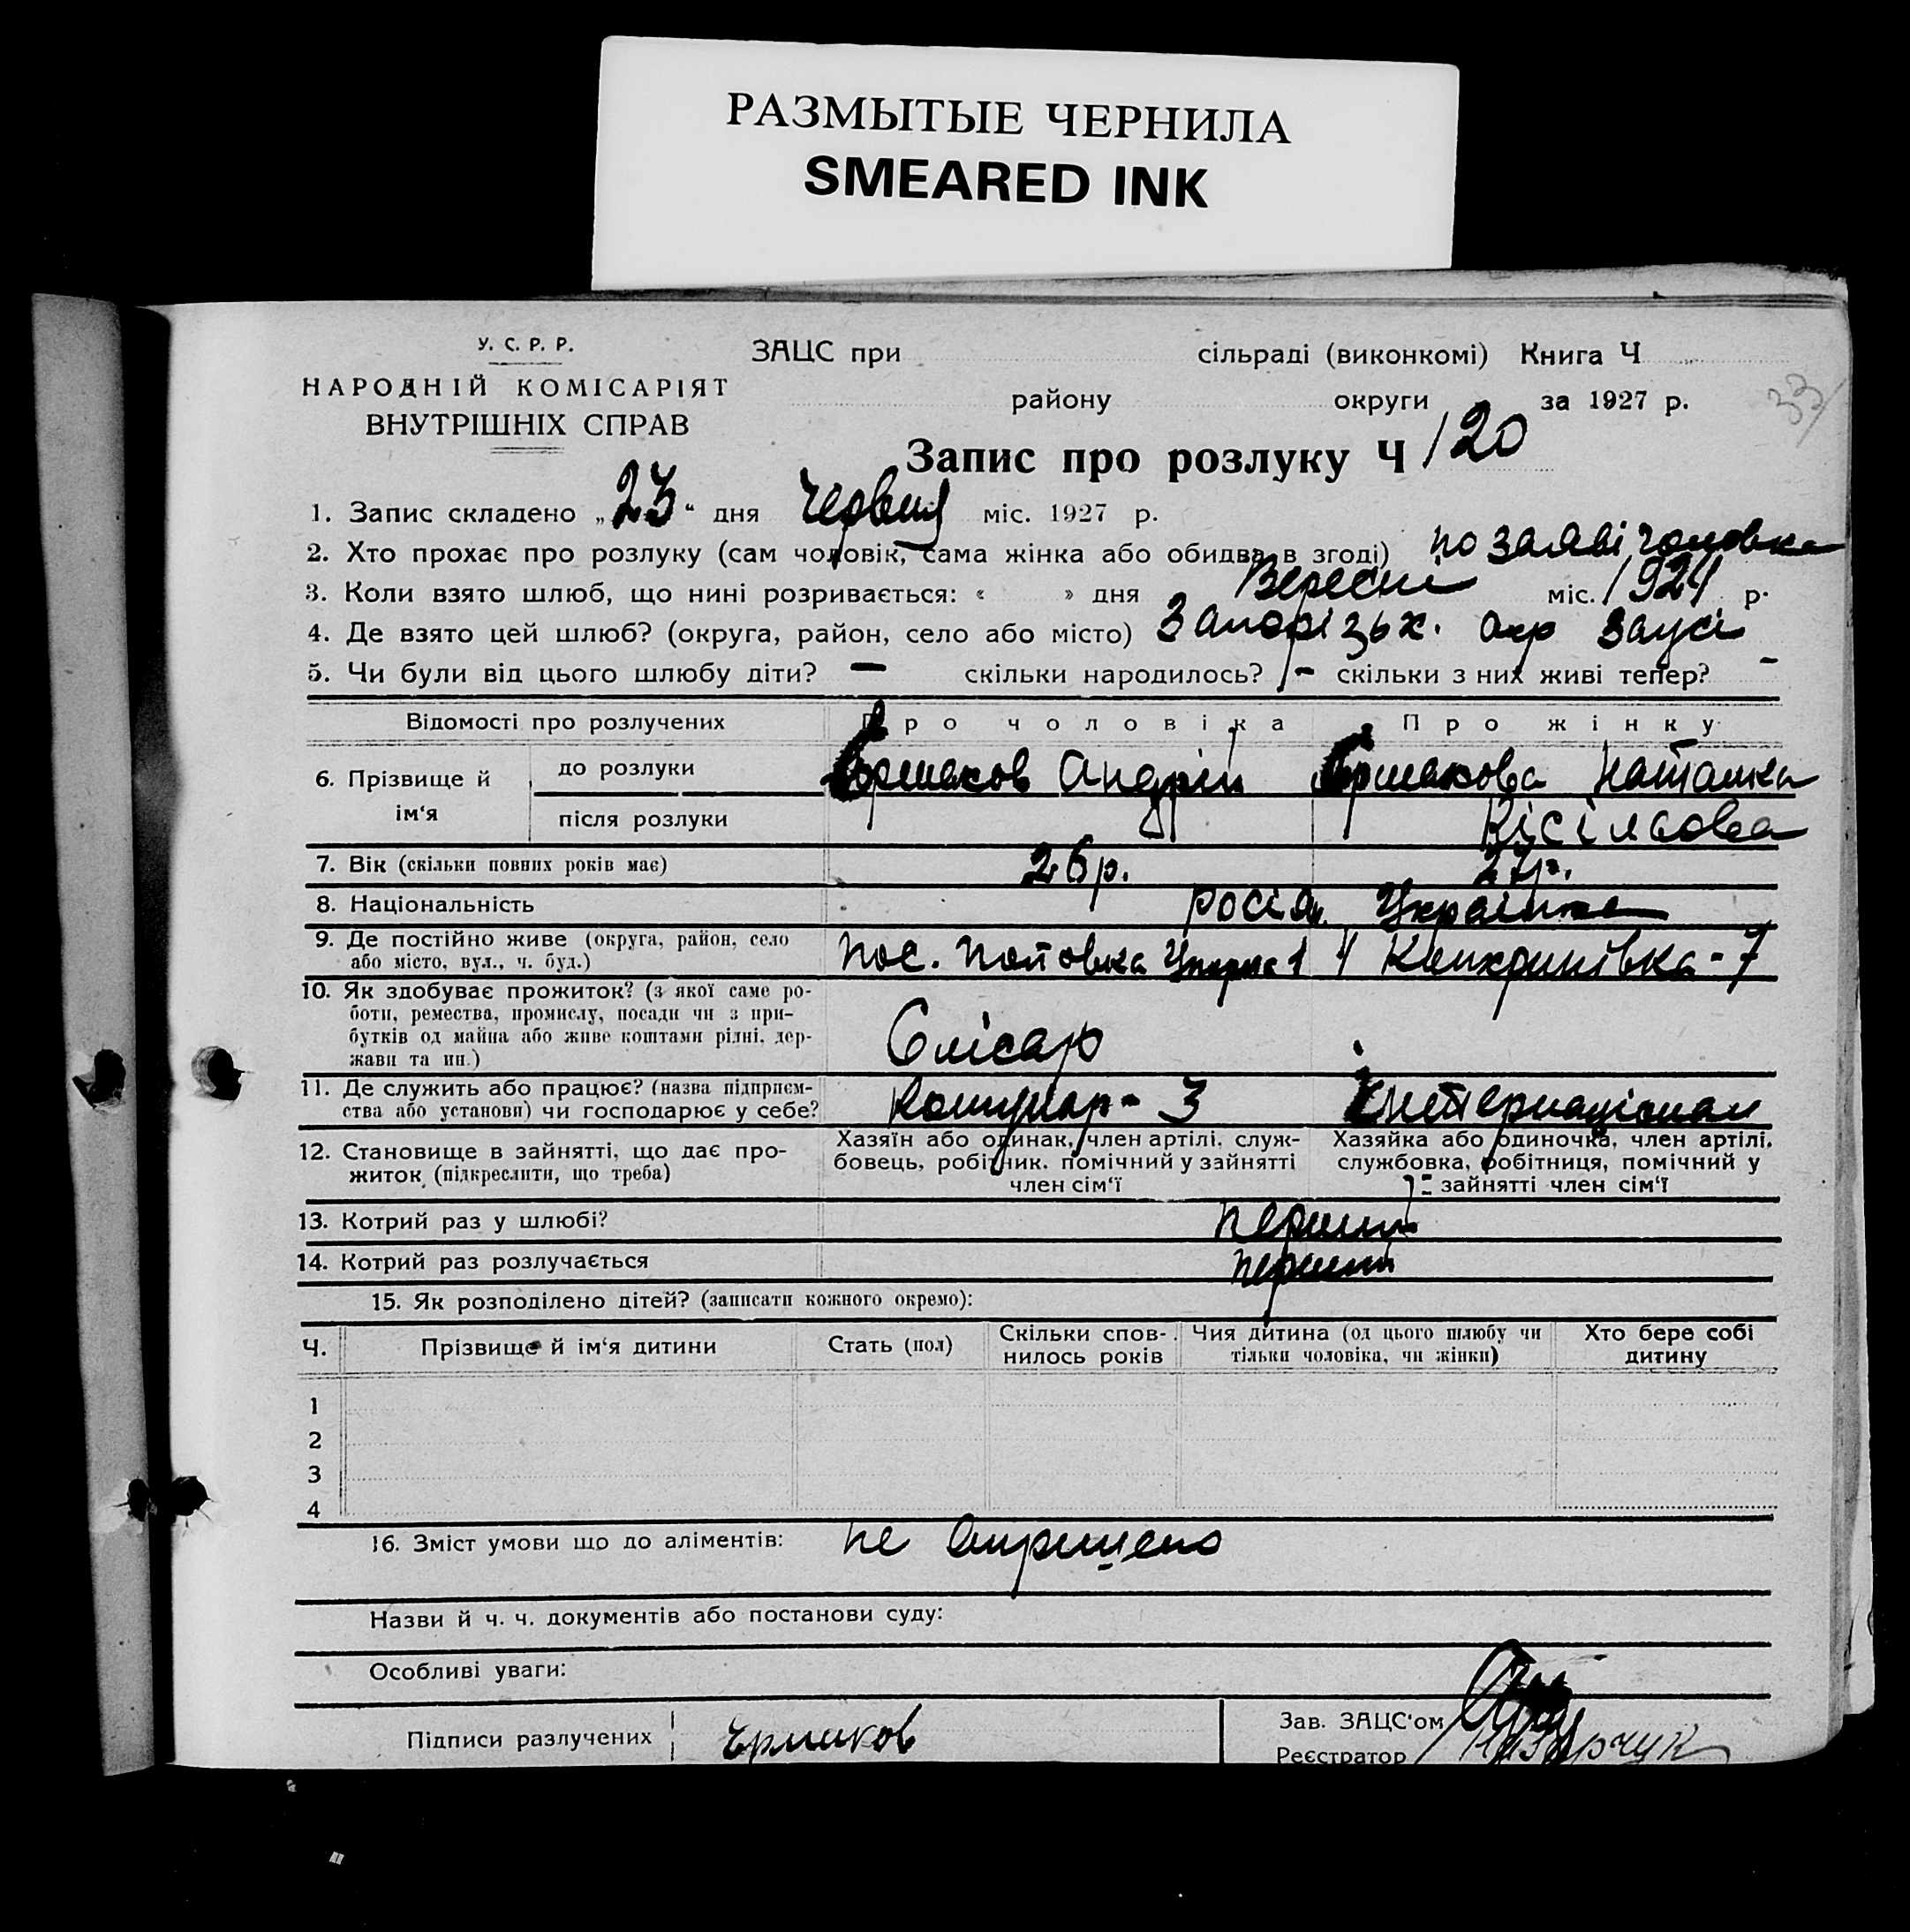 РАЗМЫТЫЕ ЧЕРНИЛА
SMEARED INK
У. С. Р. Р.
НАРОДНІЙ КОМІСАРІЯТ
ВНУТРІШНІХ СПРАВ
ЗАЦС при сільраді (виконкомі) Книга Ч
району округи за 1927 р.
33
Запис про розлуку Ч 120
1. Запис складено „23“ дня Червня міс. 1927 р.
2. Хто прохає про розлуку (сам чоловік, сама жінка або обидва в згоді) по заяві чоловіка
3. Коли взято шлюб, що нині розривається: « » дня Вересні міс. 1924 р.
4. Де взято цей шлюб? (округа, район, село або місто) Запорізьк. окр
5. Чи були від цього шлюбу діти? — скільки народилось? — скільки з них живі тепер? —
Відомості про розлучених Про чоловіка Про жінку
6. Прізвище й ім‘я
до розлуки Єрмаков Андрій Єрмакова Наталка
після розлуки
7. Вік (скільки повних років має) 26р. 27р.
8. Національність росіян. Українка
9. Де постійно живе (округа, район, село
або місто, вул., ч. буд.) пос. 7
10. Як здобуває прожиток? (з якої саме ро-
боти, ремества, промислу, посади чи з при-
бутків од майна або живе коштами рідні, дер-
жави та ин.)
Слісар
11. Де служить або працює? (назва підприєм-
ства або установи) чи господарює у себе?
Комунар - 3 Інтернаціонал
12. Становище в зайнятті, що дає про-
житок (підкреслити, що треба)
Хазяїн або одинак, член артілі, служ-
бовець, робітник, помічний у зайнятті
член сім‘ї
Хазяйка або одиночка, член артілі,
службовка, робітниця, помічний у
зайнятті член сім‘ї
13. Котрий раз у шлюбі? перший
14. Котрий раз розлучається перший
15. Як розподілено дітей? (записати кожного окремо):
Ч. Прізвище й ім‘я дитини Стать (пол) Скільки спов-
нилось років Чия дитина (од цього шлюбу чи
тільки чоловіка, чи жінки) Хто бере собі
дитину
1
2
3
4
16. Зміст умови що до аліментів: не вирішено
Назви й ч. ч. документів або постанови суду:
Особливі уваги:
Підписи разлучених Ермаков
Зав. ЗАЦС‘ом
Реєстратор